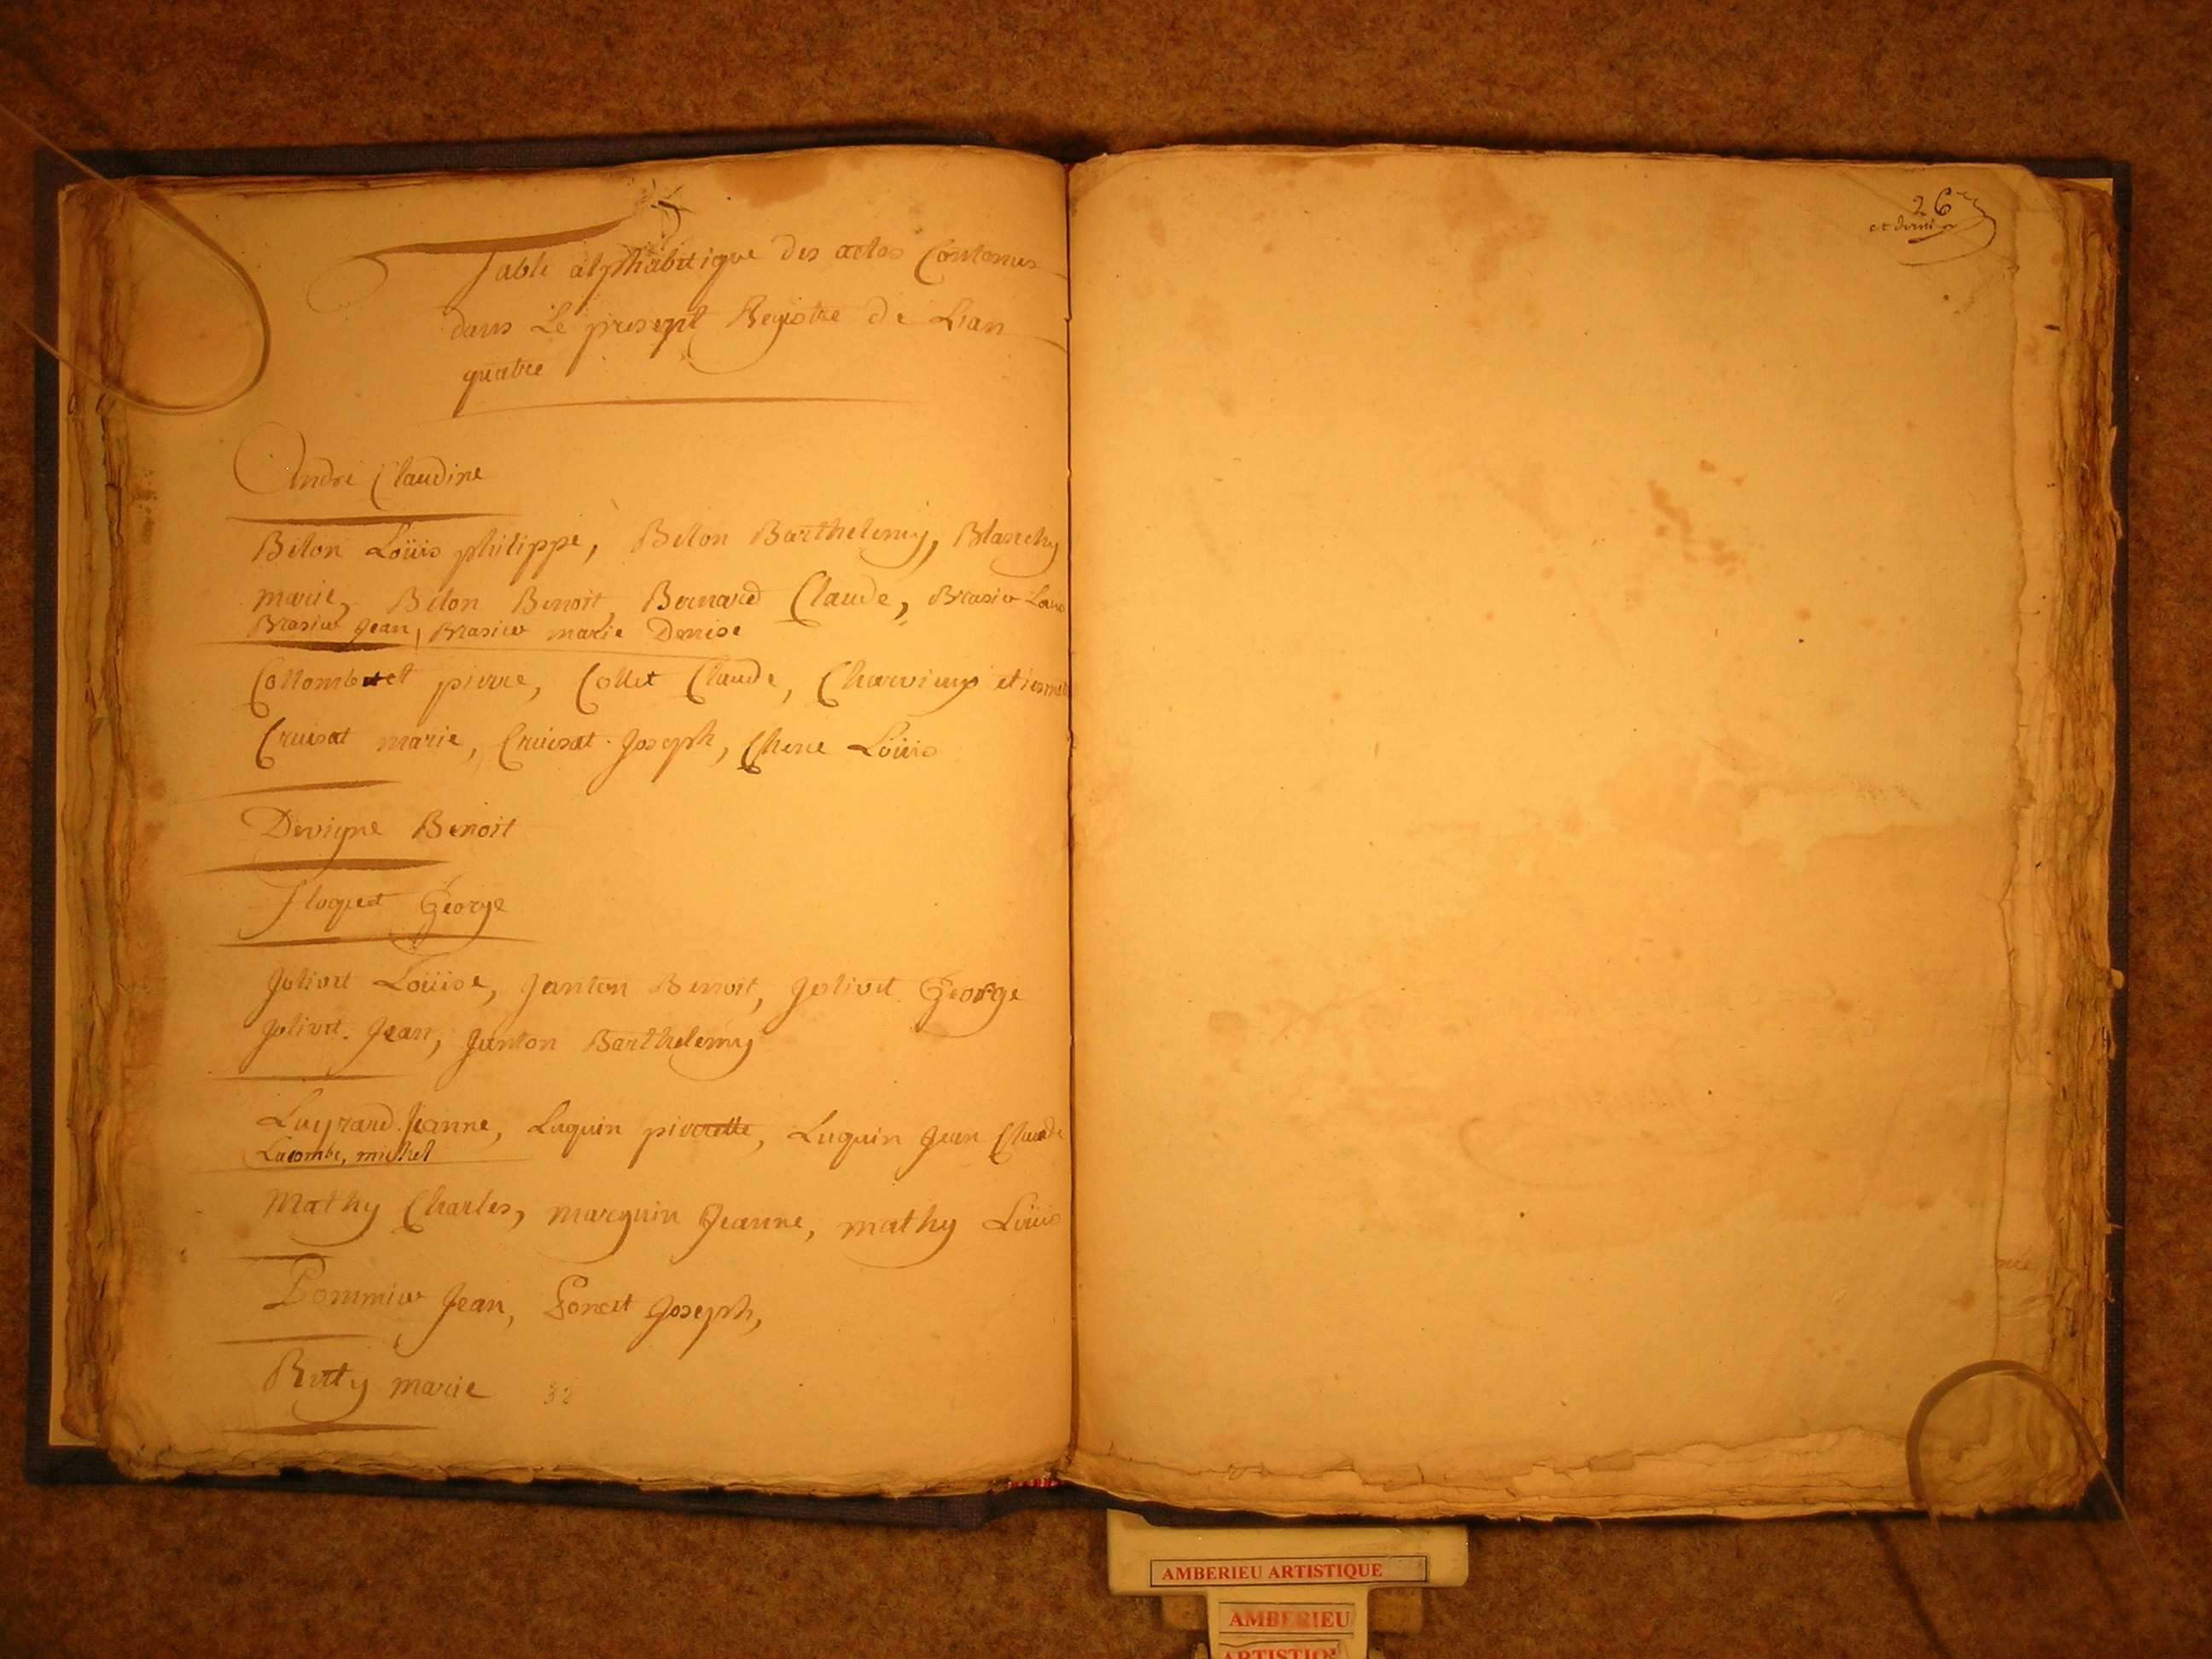 Table alphabetique des actes Contenus
dans Le present Registre de Lan
quatre
André Claudine
Bélon Loüis philippe, Bélon Barthelemy, Blanchy
marie, Bélon Benoit, Bernard Claude, Brasier Loüis
Brasier Jean, Brasier marie Denise
Collombet pierre, Collet Claude, Charvieux etienne
Cruisat marie, Cruisat Joseph, Chene Loüis
Devigne Benoit
Floquet George
Jolivet Loüise, Janton Benoit, Jolivet George
Jolivet Jean, Janton Barthelemy
Luyrard Jeanne, Luquin pierrette, Luquin Jean Claude
Lacombe, michel
Mathy Charles, marguin Jeanne, mathy Loüis
Pommier Jean, Poncet Joseph,
Ruty marie 32
26
et dernier
AMBERIEU ARTISTIQUE
AMBERIEU
ARTISTIQUE